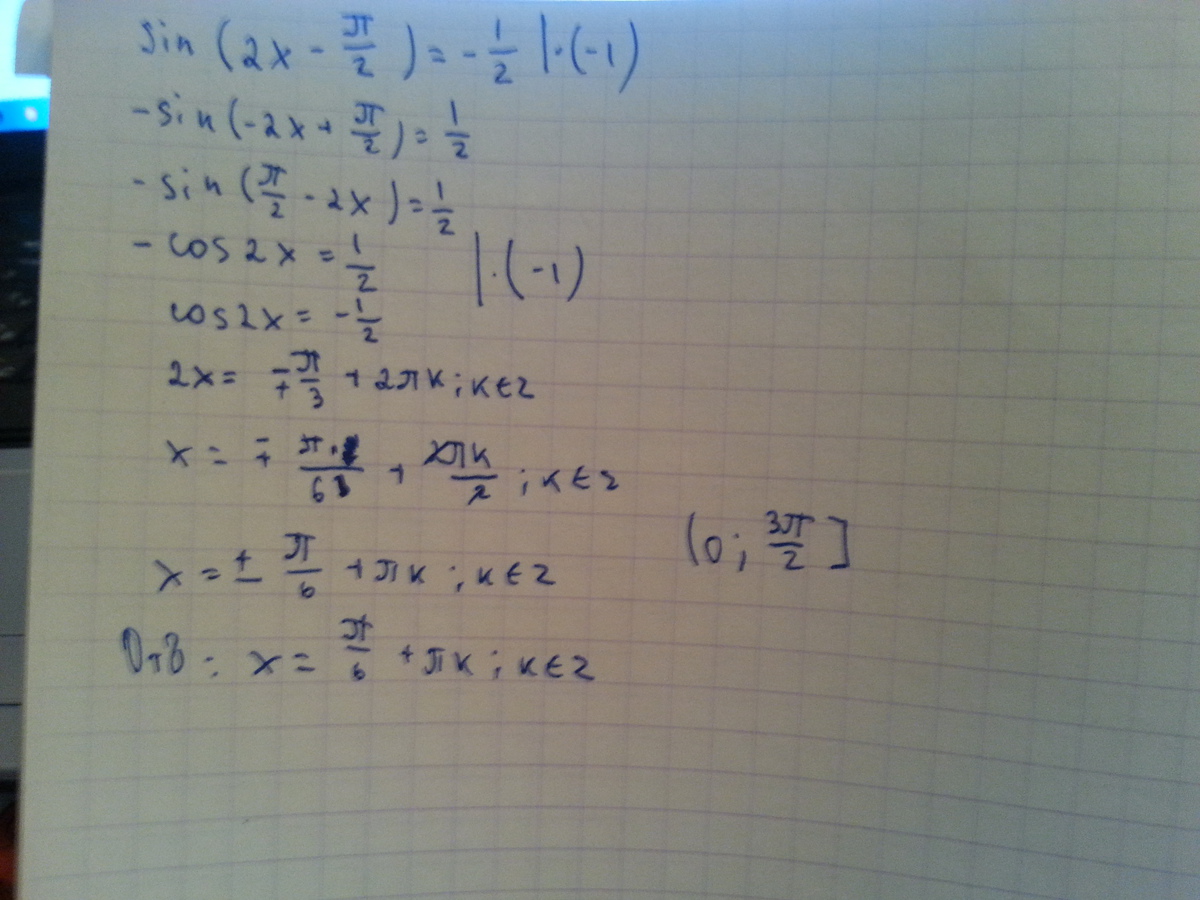 sin (2x - π/2) = - 1/2 | · (-1)
- sin (-2x + π/2) = 1/2
- sin (π/2 - 2x) = 1/2
- cos 2x = 1/2 | · (-1)
cos 2x = - 1/2
2x = ∓ π/3 + 2πk ; k ∈ z
x = ∓ π·1/6 + 2πk/2 ; k ∈ z
(0; 3π/2]
x = ± π/6 + πk ; k ∈ z
Отв : x = π/6 + πk ; k ∈ z